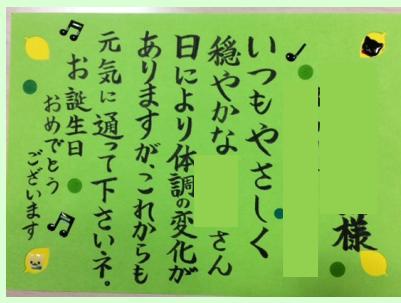 様
いつもやさしく
穏やかな さん
日により体調の変化が
ありますが、これからも
元気に通って下さいネ。
お誕生日
おめでとう
ございます